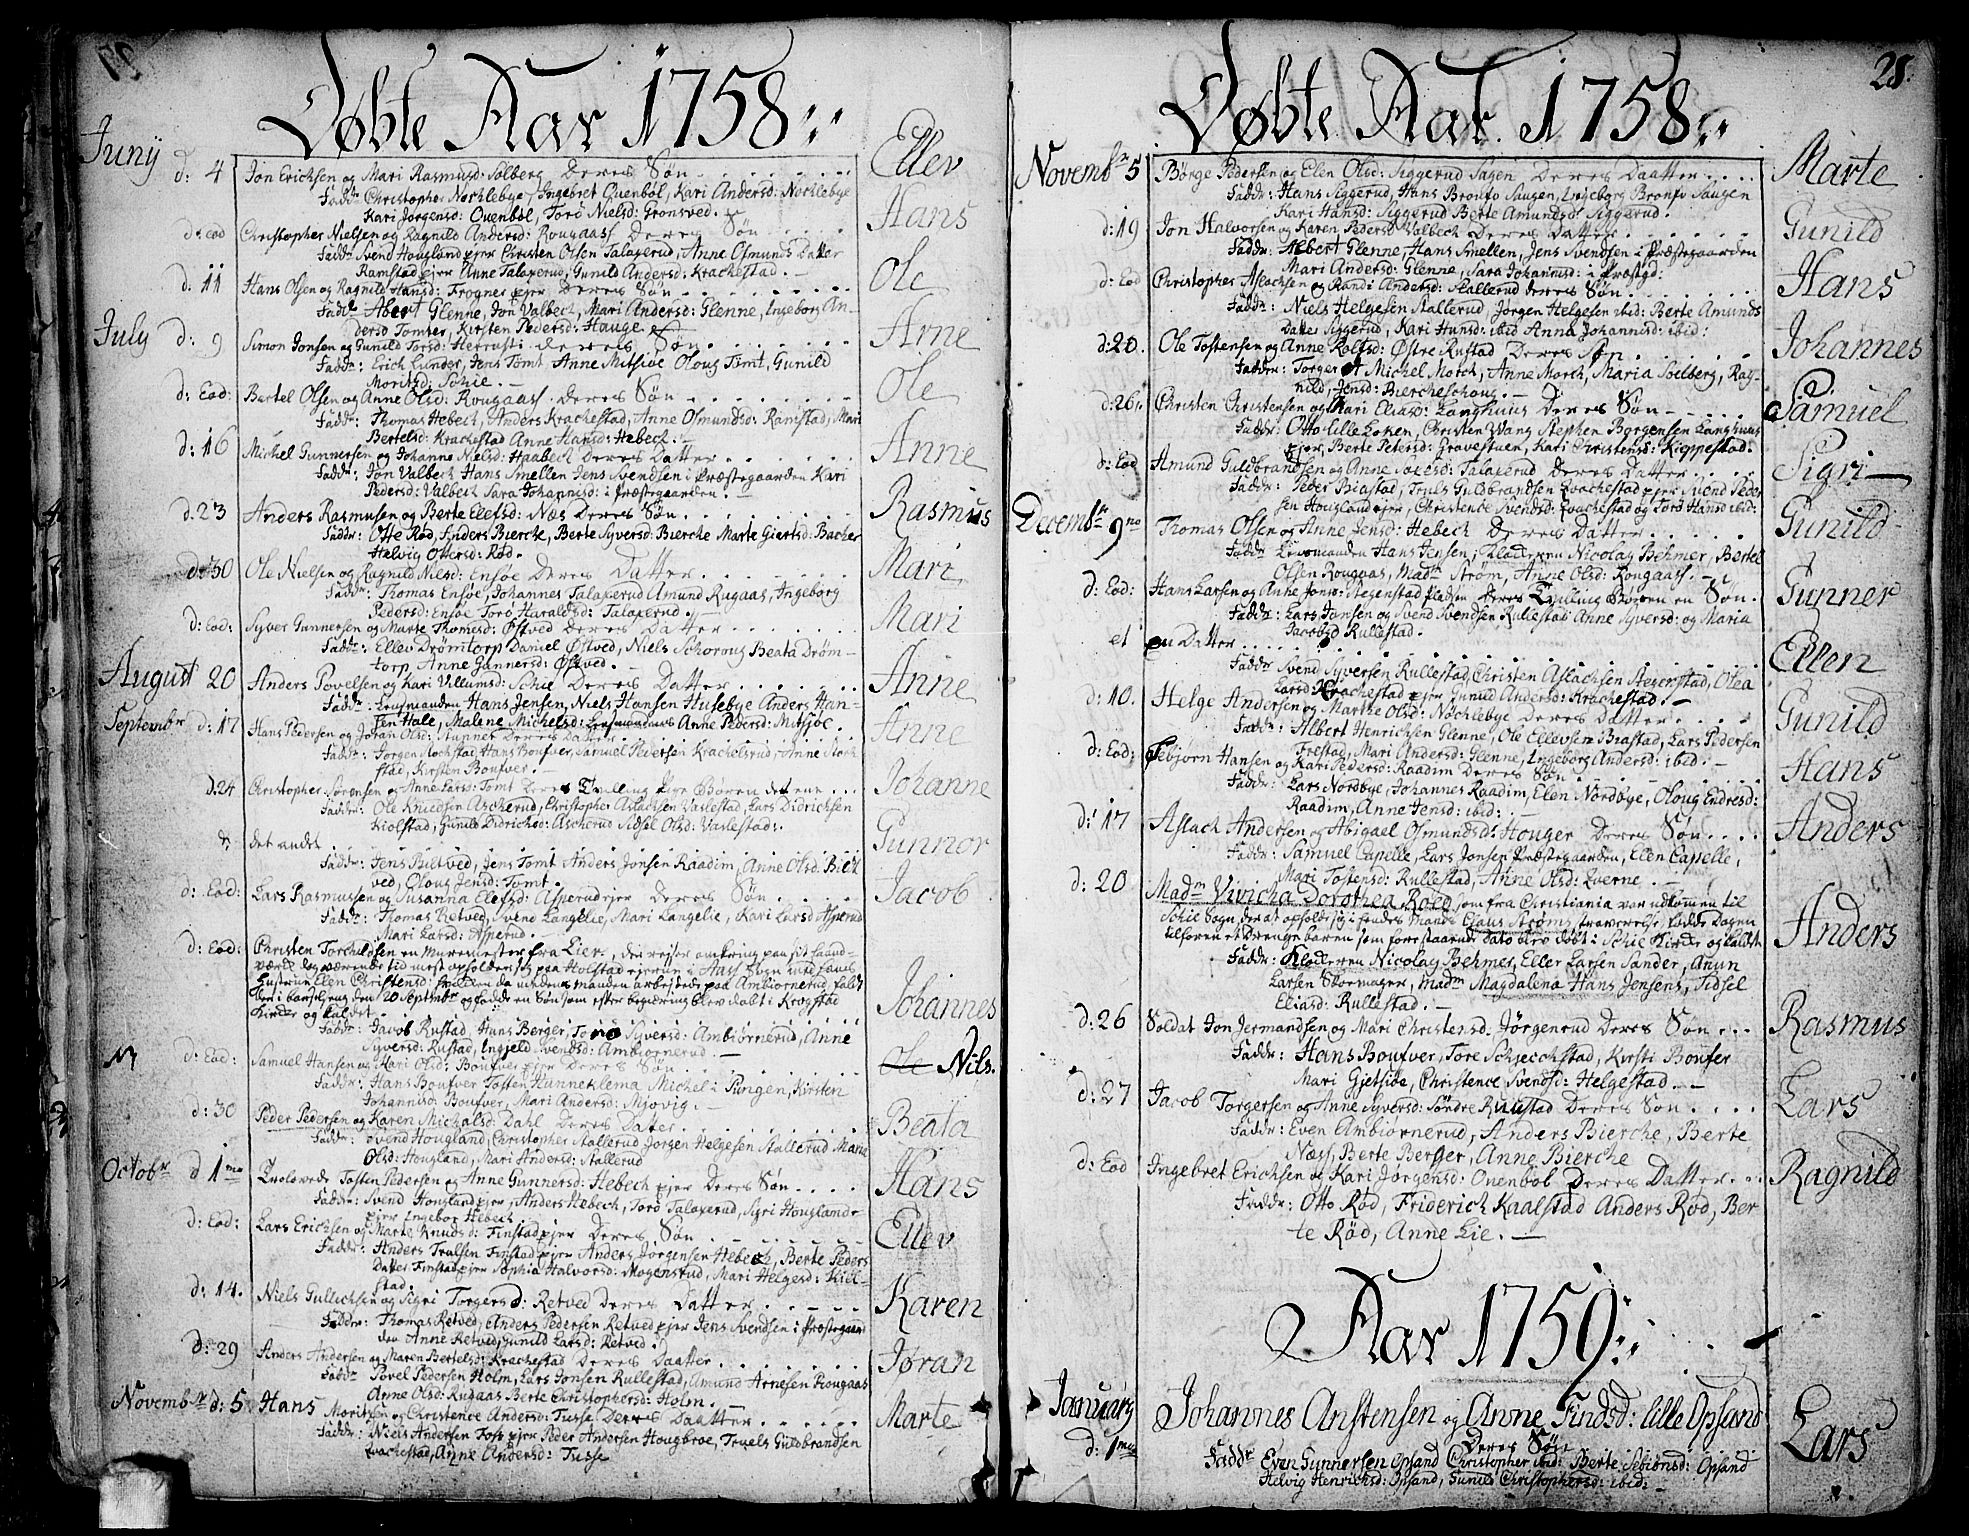 Døbte Aar 1758
Juny d: 4 Jon Ericksen og Mari Rasmusd: Solberg Deres Søn Ellev
Faddr: Christopher Nøchlebye, Ingebret Ouenbøl, Kari Andersd: Nøchlebye
Kari Jørgensd: Ouenbøl, Torø Nielsd: Grønsved.
d: Eod Christopher Nielsen og Ragnild Andersd: Rougaas Deres Søn Hans
Faddr Svend Hougland ejer Christen Olsen Talaxerud, Anne Osmunds Datter
Ramstad ejer Anne Talaxerud, Gunild Andersd: Krachestad.
d. 11 Hans Olsen og Ragnild Hansd: Frogner ejer Deres Søn Ole
Faddr Abert Glenne, Jon Valbech, Mari Andersd: Glenne, Ingeborg An-
dersd Tomter, Kirsten Pedersd: Hauge
July d: 9 Simon Jonsen og Gunild Torsd: deres Søn Arne
Faddr: Erich Lunder, Jens Tomt Anne Mitsiøe Oloug Tomt, Gunild
Moritsd: Schie.
d: Eod: Bertel Olsen og Anne Olsd: Rougaas: deres Søn Ole
Faddr: Thomas Hebech, Anders Krachestad, Anne Osmundsd: Ramstad, Mari
Bertelsd: Krachestad Anne Hansd: Hebech.
d: 16 Michel Gunnersen og Johanne Nielsd: Haabech Deres Datter Anne
Faddr: Jon Valbech Hans Smellen Jens Svendsen i Præstegaarden Kari
Pedersd: Valbech Sara Johannisd: i Præstegaarden.
d. 23 Anders Rasmusen og Berte Elefsd: Næs Deres Søn Rasmus
Faddr: Otte Rød, Anders Bierche, Berte Syversd: Bierche Marte Giertsd: Bacher
Helvig Ottersd: Rød.
d: 30 Ole Nielsen og Ragnild Nilsd: Ensøe Deres Datter Mari
Faddr: Thomas Ensøe, Johannes Talaxerud Amund Rugaas, Ingeborg
Pedersd: Ensøe Torø Haraldsd: Talaxerud.
d: Eod: Syver Gunnersen og Marte Thomesd: Østved Deres Datter Mari
Faddr: Ellev Drømtorp Daniel Østved, Niels Beata Drøm-
torp Anne Gunnersd: Østved.
August 20 Anders Povelsen og Kari Villumsd: Schie Deres Datter Anne
Faddr: Lensmanden Hans Jensen, Niels Hansen Husebye Anders Han-
sen Hale, Malene Michelsd: Anne Pedersd: Mitsjøe.
Septembr d: 17 Hans Pedersen og Joran Olsd: Stunner Deres Datter Anne
Faddr: Jørgen Hans Boufver, Samuel Pedersen Krachelsrud, Anne
stad, Kirsten Boufver.
d. 24 Christopher Sørensen og Anne Larsd: Tomt Deres Tvilling Pige Børen det ene Johanne
Faddr: Ole Knudsen Ascherud, Christopher Aslachsen Vaslestad, Lars Didrichsen
Kiolstad, Gunild Didrichsd: Ascherud Sidsel Olsd: Vaslestad:
& det andet Gunnor
Faddr: Jens Bultved, Jens Tomt Anders Jonsen Raadim, Anne Olsd. Bult
ved, Oloug Jensd: Tomt.
d: Eod: Lars Rasmussen og Susanna Elefsd: Asperud ejer Deres Søn Jacob
Faddr: Thomas Retved, Svend Langelie, Mari Langelie, Kari Larsd Asperud
Mari Larsd: Asperud.
d: Eod: Christen Torchildsen en Muremester fra Lier, der rejser omkring paa sit Haand-
værk dog værende tid mest opholder sig paa Holstad ejerun i Aass Sogn inte hans
Hustrue Elen Christensd: da manden arbejdede paa Ambiørnerud, faldt
Der i barselseng den 20 Septembr og fødde en Søn som efter begiering blev døbt i Krogstad
Kirche og kaldet Johannes
Faddr: Jacob Rustad, Hans Berger, Torø Syversd: Ambiørnerud, Anne
Syversd: Rustad, Ingjeld Svendsd: Ambiornerud.
d: Eod: Samuel Hansen og Mari Olsd: Boufver ejer Deres Søn Ole Nils.
Faddr: Hans Boufver Tosten Hunneklema Michel i Pungen, Kirsten
Johannisd: Boufver, Mari Andersd: Mjovig.
d: 30 Peder Pedersen og Karen Michalsd: Dahl Deres Dater Beata
Faddr: Svend Hougland, Christopher Stallerud Jørgen Helgesen Stallerud Marie
Olsd: Hougland, Mari Andersd: Stallerud
Octobr d 1mo Trolovede Tosten Pedersen og Anne Gunnersd: Hebech ejer Deres Søn Hans
Faddr: Svend Hougland ejer, Anders Hebech, Tord Talaxerud, Sigri Houglands
ejer Ingebor Hebech
d: Eod: Lars Erichsen og Marte Knudsd: Finstad ejer Deres Søn Ellev
Faddr: Anders Trulsen Finstad ejer Anders Jørgensen Hebech, Berte Peders
Datter Finstad ejer Sophia Halvorsd: Mogenstrud, Mari Helgesd: Kiel-
stad.
d: 14. Niels Gullichsen og Sigri Torgersd: Retved Deres Datter Karen
Faddr: Thomas Retved, Anders Pedersen Retved ejer Jens Svendsen i Præstegaar
den Anne Retved, Gunild Larsd: Retved.
d: 29 Anders Andersen og Maren Bertelsd: Krachestad Deres Daatter Jøran
Faddr Povel Pedersen Holm, Lars Jonsen Rullestad, Amund Arnesen Rougaas
Anne Olsd: Rugaas Berte Christophersd: Holm.
Novembr d: 5 Hans Moritsen og Christence Andersd: Tusse Deres Daatter Marte
Faddr: Niels Andersen Foss ejer Peder Andersen Hougbroe, Truels Guldbrandsen
Krachestad, Anne Andersd: Tusse
28.
Døbte Aar 1758
Novembr 5 Børge Pedersen og Elen Olsd: Siggerud Sagen Deres Daatter Marte
Faddr: Hans Siggerud, Hans Bronfo Saugen, Ingeborg Bronfo Saugen
Kari Hansd: Siggerud Berte Amundsd: Siggerud.
d: 19 Jon Halvorsen og Karen Pedersd: Valbech Deres Datter Gunild
Faddr: Albert Glenne, Hans Smellen, Jens Svendsen i Præstegaarden
Mari Andersd: Glenne, Sara Johannisd: i Præstgd:
d: Eod Christopher Aslachsen og Randi Andersd: Stallerud deres Søn Hans
Faddr: Niels Helgesen Stallerud, Jørgen Helgesen ibid: Berte Amunds
Datter Siggerud, Kari Hansd: ibid Anna Johannisd: ibid:
d: 20. Ole Tostensen og Anne Rolfsd: Østre Rustad Deres Søn Johannes
Faddr: Torger og Michel Morch, Anne Morch, Maria Solberg, Rag-
nild, Jensd: Biercheschoug.
d: 26. Christen Christensen og Mari Eliasd: Langhuus Deres Søn Samuel
Faddr: Otto Lille Loken, Christen Wang Stephen Børgensen Langhuus
ejer, Berte Petersd: Gravestuen, Kari Christensd: Kieppestad.
d: Eod Amund Guldbrandsen og Anne Jokesd: Talaxerud Deres Datter Sigri
Faddr: Peder Biastad, Truls Guldbrandsen Krachestad ejer Svend Peder
sen Hougland ejer, Christence Svendsd: Krachestad og Torø Hansd ibid:
Decembr 9no Thomas Olsen og Anne Jensd: Hebech Deres Datter Gunild
Faddr Lensmanden Hans Jensen, Kloderen Nicolay Behmer, Bertel
Olsen Rougaas, Madm Strøm, Anne Olsd: Rougaass.
d: Eod: Hans Larsen og Anne Jonsd: Stegenstad pladsen Deres Tvilling Børen en Søn Gunner
Faddr: Lars Jonsen og Svend Svendsen Rullestad Anne Syversd: og Maria
Jacobsd Rullestad.
et en Datter Ellen
Faddr Svend Syversen Rullestad, Christen Aslachsen Stegerstad, Olea
Larsd: Krachestad ejer Gunild Andersd: Krachestad.
d: 10. Helge Andersen og Marthe Olsd: Nøchlebye Deres Datter Gunild
Faddr: Albert Henrichsen Glenne, Ole Ellevsen Brastad, Lars Pedersen
Frestad, Mari Andersd: Glenne, Ingeborg Andersd: ibid.
d: Eod: Sebjørn Hansen og Kari Pedersd: Raadim Deres Søn Hans
Faddr: Lars Nordbye, Johannes Raadim, Elen Nordbye, Oloug Endresd:
Raadim, Anne Jensd: ibid:
d: 17 Aslach Andersen og Abigael Osmundsd: Houger Deres Søn Anders
Faddr: Samuel Capelle, Lars Jonsen Præstegaarden, Elen Capelle,
Mari Tostensd: Rullestad, Anne Olsd: Kverne.
d: 20 Madm Vivicha Dorothea Roee som fra Christiania var udkomen til
Schie Sogn der at opholde sig i hendes Mands Claus Strøms fraværelse fødde Dagen
tilforen et Drenge baren som forestaaende Dato blev døbt i Schie Kirche og kaldet Anders
Faddr: Kloderen Nicolay Behmer, Eller Larsen Sander, Anun
Larsen Skormager, Madm Magdalena Hans Jensens, Sidsel
Eliasd: Rullestad.
d: 26 Soldat Jon Jermandsen og Mari Christensd: Jørgenrud Deres Søn Rasmus
Faddr: Hans Boufver, Tore Schjecchstad, Kirsti Boufer
Mari Gjetsiøe, Christence Svendsd: Helgestad.
d: 27 Jacob Torgersen og Anne Syversd: Søndre Ruustad Deres Søn Lars
Faddr: Even Ambiørnerud, Anders Bierche, Berte
Næss, Berte Berger, Anne Bierche
d: Eod Ingebret Erichsen og Kari Jørgensd: Ouenbøl Deres Datter Ragnild
Faddr: Otto Rød, Friderich Kaalstad Anders Rød, Ber
te Rød, Anne Lie.
Aar 1759
January d: 1mo Johannes Anstensen og Anne Findsd: lille Opsand Lars
Deres Søn
Faddr Even Gunnersen Opsand Christopher ibid: Berte Sebiønsd: Opsand
Helvig Henrichsd: Opsand, Gunild Christophersd: ibid: